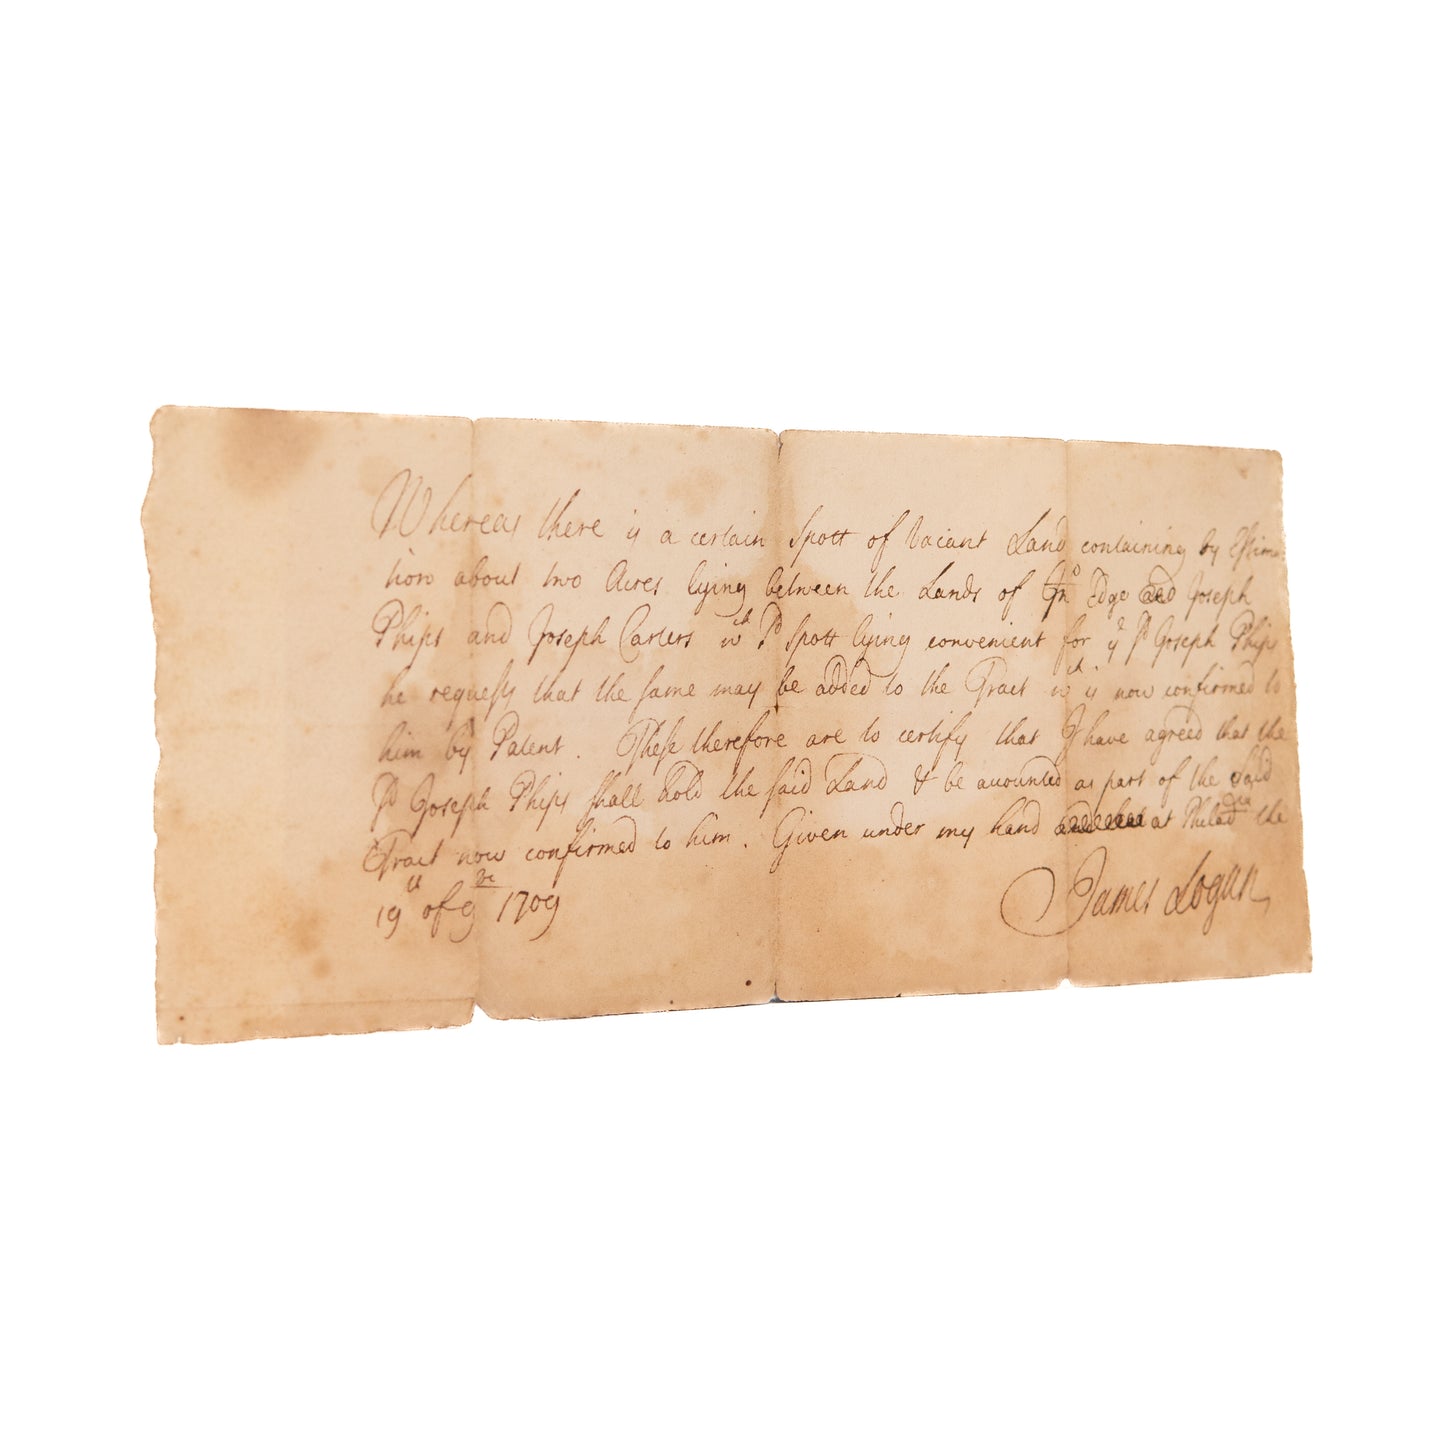 Whereas there is a certain Spott of Vacant Land containing by Estima
tion about two Acres lying between the Lands of Jno Edge Joseph
Phips and Joseph Carters wch sd Spott lying convenient for ye sd Joseph Phips
he requests that the same may be added to the Tract wch is now confirmed to
him by Patent. These therefore are to certify that I have agreed that the
sd Joseph Phips shall hold the said Land & be accounted as part of the said
Tract now confirmed to him. Given under my hand at Philadia the
19th of 9br 1709
James Logan